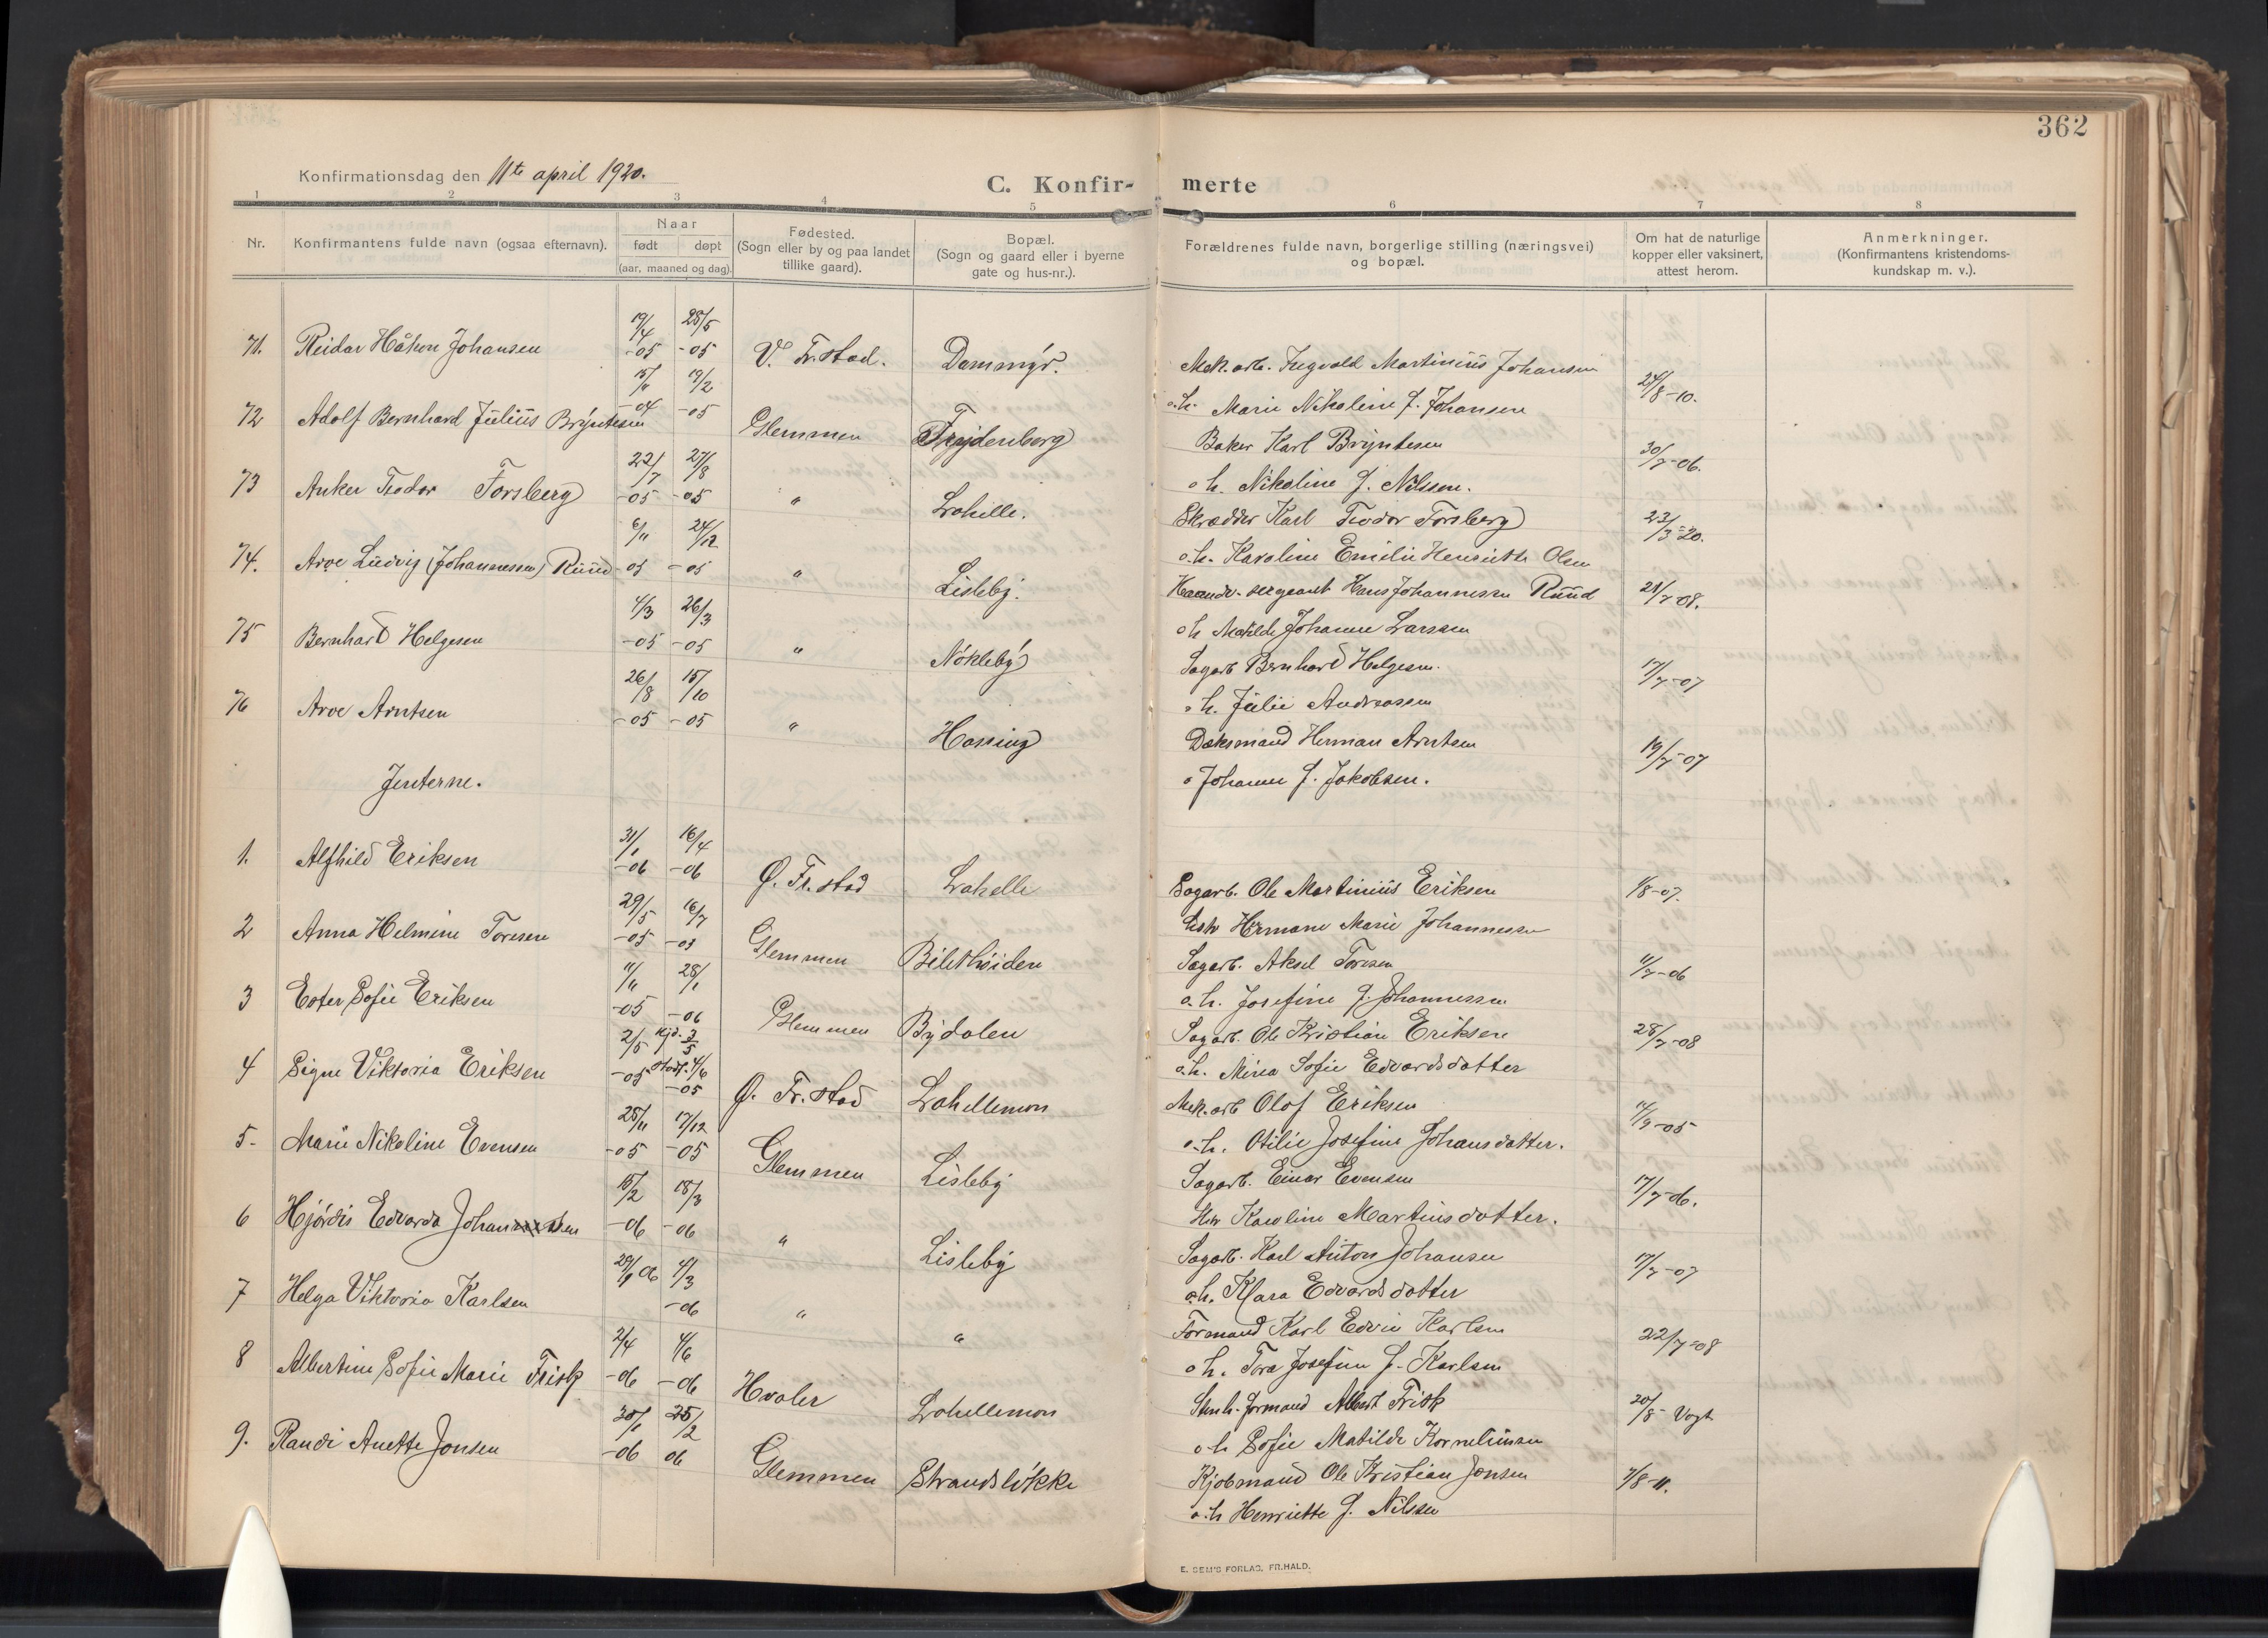 362
Konfirmationsdag den 11te april 1920.
C. Konfir-
merte
1 2 3 4 5 6 7 8
Nr.
Konfirmantens fulde navn (ogsaa efternavn).
Naar
født døpt
(aar, maaned og dag).
Fødested.
(Sogn eller by og paa landet
tillike gaard).
Bopæl.
(Sogn og gaard eller i byerne
gate og hus-nr.).
Forældrenes fulde navn, borgerlige stilling (næringsvei)
og bopæl.
Om hat de naturlige
kopper eller vaksinert,
attest herom.
Anmerkninger.
(Konfirmantens kristendoms-
kundskap m. v.).
71. Reidar Håkon Johansen 19/4 -05 28/5 -05 V. Fr.stad. Dammyr.
Mek. arb. Ingvald Martinius Johansen 24/8-10.
o.h. Marie Nikoline f. Johansen
72 Adolf Bernhard Julius Bryntesen 15/11 -04 19/2 -05 Glemmen Frydenberg
Baker Karl Bryntesen 30/7-06.
o h. Nikoline f. Nilssen.
73 Anker Teodor Forsberg 22/7 -05 27/8 -05 " Lahelle.
Skrædder Karl Teodor Forsberg 23/3-20.
o.h. Karoline Emilie Henriette Olsen
74. Arve Ludvig (Johannessen) Ruud 6/11 -05 24/12 -05 " Lisleby.
sergeant Hans Johannessen Ruud 21/7-08.
o h Matilde Johanne Larssen
75 Bernhard Helgesen 4/3 -05 26/3 -05 " Nökleby
Sagarb Bernhard Helgesen. 17/7-07
o h. Julie Andreassen
76 Arve Arntsen 26/8 -05 15/10 -05 " Hassing
Dæksmand Herman Arntsen 19/7-07
o Johanne f. Jakobsen.
Jenterne.
1. Alfhild Eriksen 31/1 -06 16/4 -06 Ø. Fr.stad Lahelle
Sagarb. Ole Martinius Eriksen 1/8-07.
Hermane Marie Johannessen
2 Anna Helmine Toresen 29/5 -05 16/7 -05 Glemmen Bilethöiden
Sagarb. Aksel Toresen 11/7-06
o.h. Josefine f. Johannessen
3 Ester Sofie Eriksen 11/11 -05 28/1 -06 Glemmen Bydalen
Sagarb. Ole Kristian Eriksen 28/7-08
o.h. Mina Sofie Edvardsdatter
4 Signe Viktoria Eriksen 2/5 -05 Hjd. 3/5 stadf. 4/6 -05 Ø. Fr. stad Lahellemon
Mek. arb Olof Eriksen 14/9-05
o.h. Otilie Josefine Johansdatter.
5. Marie Nikoline Evensen 25/11 -05 17/12 -05 Glemmen Lisleby
Sagarb. Einar Evensen 17/7-06.
Karoline Martinisdatter.
6 Hjördis Edvarda Johansen 15/2 -06 18/3 -06 " Lisleby
Sagarb. Karl Anton Johansen 17/7-07
o.h. Klara Edvardsdatter
7 Helga Viktoria Karlsen 29/1 06 4/3 -06 " "
Formand Karl Edvin Karlsen 22/7-08
o h. Tora Josefine f. Karlsen
8 Albertine Sofie Marie Frisk 2/4 -06 4/6 -06 Hvaler Lahellemon
Stenh. formand Albert Frisk 20/8- Vogt
o h Sofie Matilde Korneliusen
9. Randi Anette Jonsen 30/1 -06 25/2 06 Glemmen Strandsløkke
Kjöbmand Ole Kristian Jonsen 7/8-11.
o.h Henriette f. Nilssen
E. SEM'S FORLAG, FR.HALD.